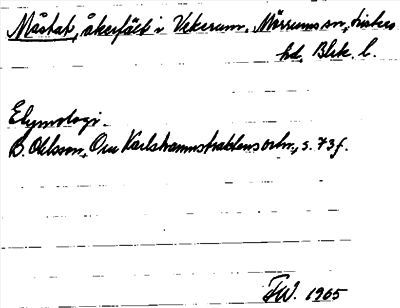 Måstat, åkerfält i Vekerum, Mörrums sn, Listers
hd, Blek. l.
Etymologi.
B. Ohlsson, Om Karlshamnstraktens ortn., s. 73 f.
FW. 1965